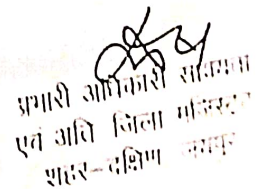 प्रभारी अधिकारी सहायता
एवं अति जिला मजिस्ट्रेट
शहर-दक्षिण जयपुर